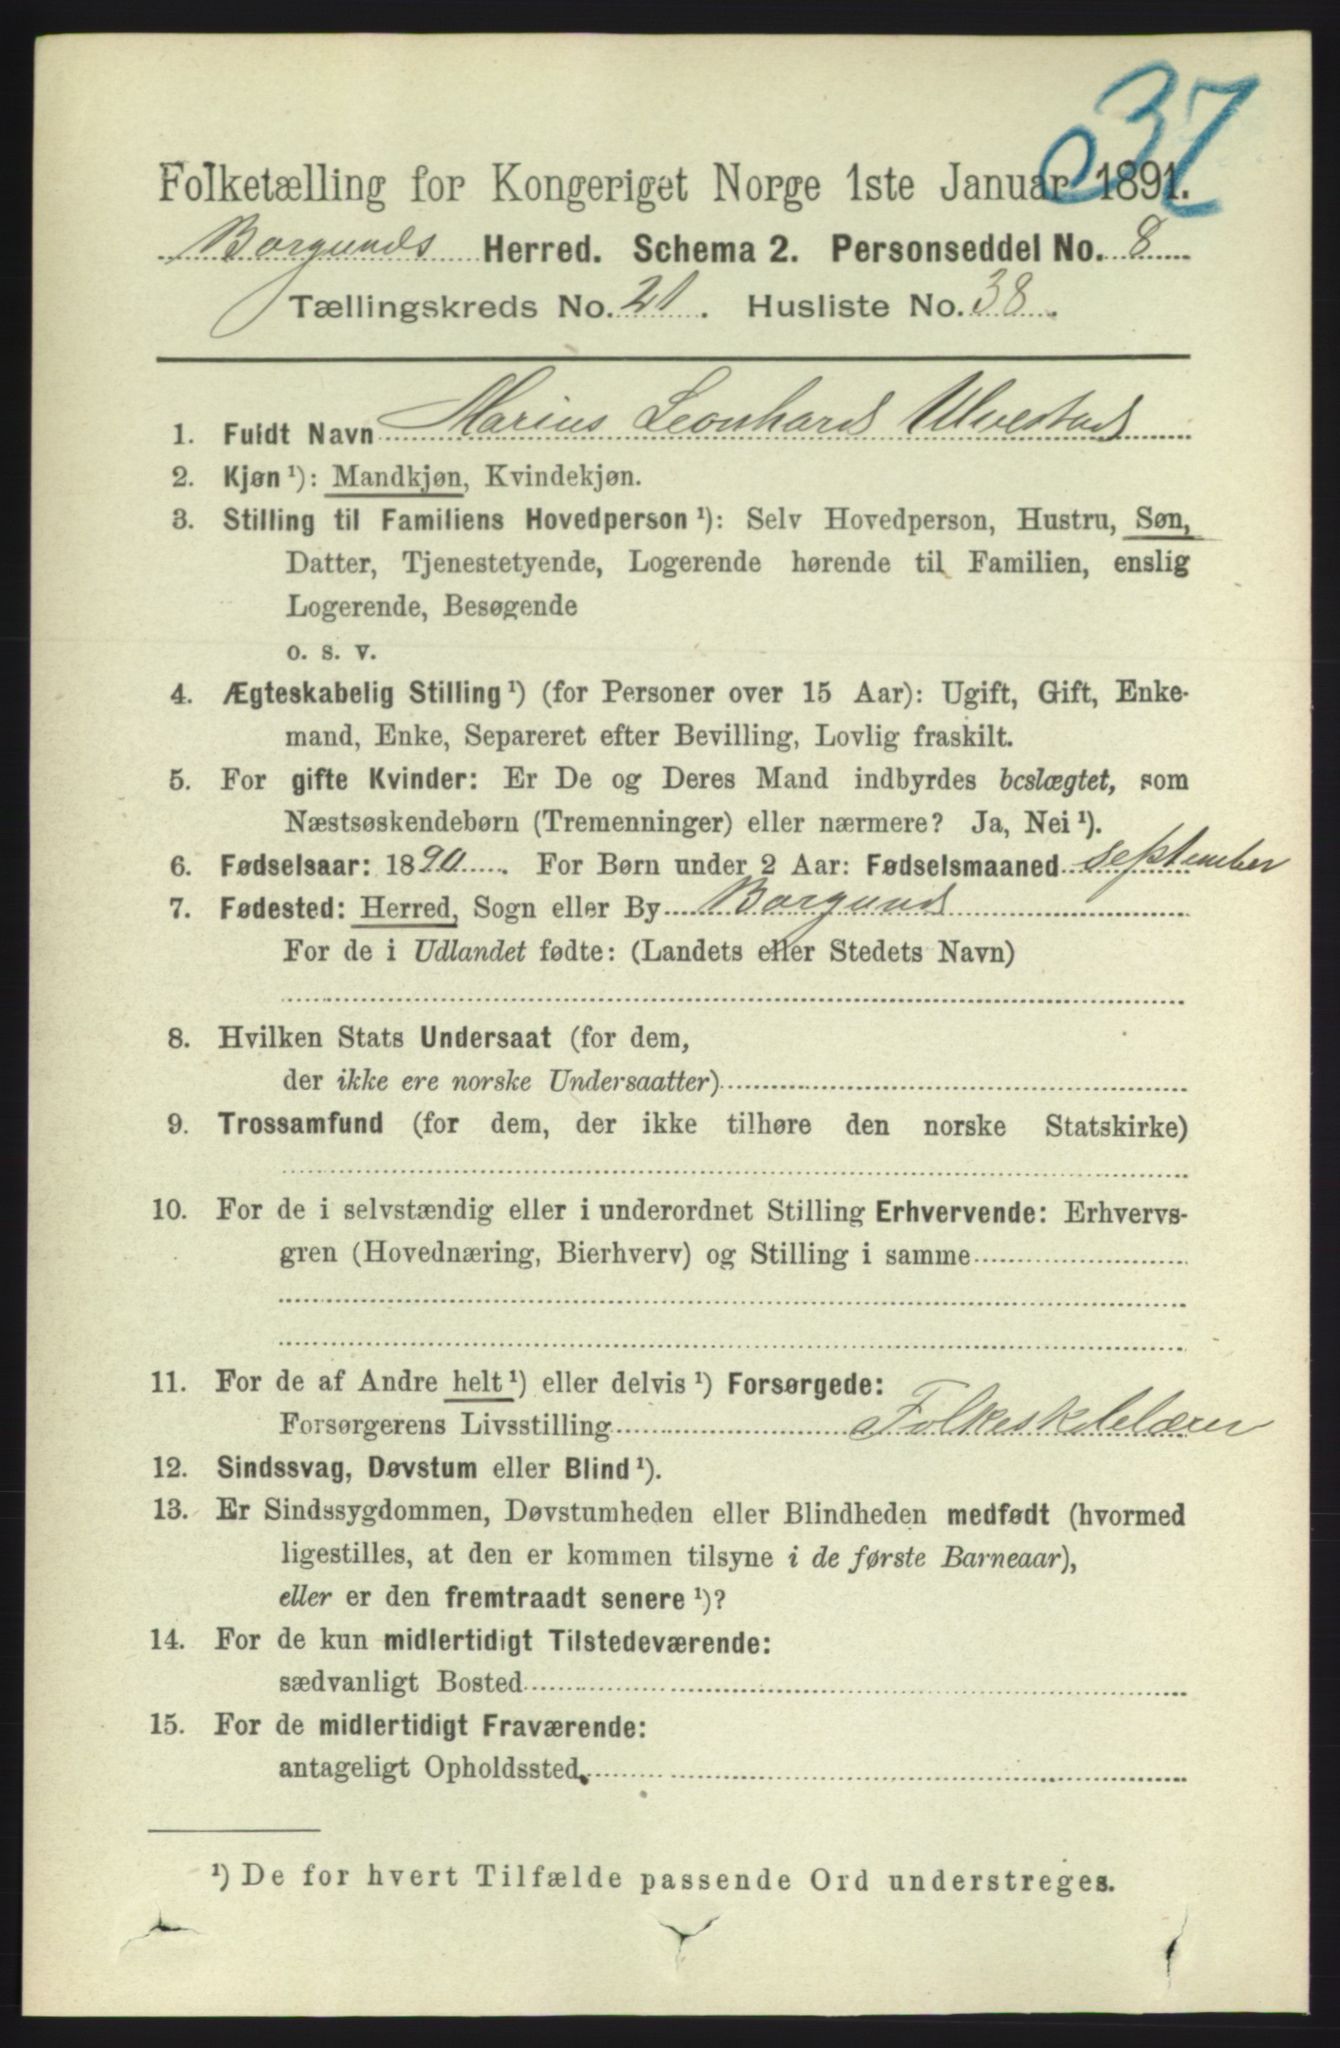 37
Folketælling for Kongeriget Norge 1ste Januar 1891.
Borgunds Herred. Schema 2. Personseddel No. 8
Tællingskreds No. 21. Husliste No. 38.
1. Fuldt Navn Marius Leonhard Ulvestad
2. Kjøn ¹): Mandkjøn, Kvindekjøn.
3. Stilling til Familiens Hovedperson ¹): Selv Hovedperson, Hustru, Søn,
Datter, Tjenestetyende, Logerende hørende til Familien, enslig
Logerende, Besøgende
o. s. v.
4. Ægteskabelig Stilling ¹) (for Personer over 15 Aar): Ugift, Gift, Enke-
mand, Enke, Separeret efter Bevilling, Lovlig fraskilt.
5. For gifte Kvinder: Er De og Deres Mand indbyrdes beslægtet, som
Næstsøskendebørn (Tremenninger) eller nærmere? Ja, Nei ¹).
6. Fødselsaar: 1890. For Børn under 2 Aar: Fødselsmaaned september
7. Fødested: Herred, Sogn eller By Borgund
For de i Udlandet fødte: (Landets eller Stedets Navn)
8. Hvilken Stats Undersaat (for dem,
der ikke ere norske Undersaatter)
9. Trossamfund (for dem, der ikke tilhøre den norske Statskirke)
10. For de i selvstændig eller i underordnet Stilling Erhvervende: Erhvervs-
gren (Hovednæring, Bierhverv) og Stilling i samme
11. For de af Andre helt ¹) eller delvis ¹) Forsørgede:
Forsørgerens Livsstilling Folkeskolelærer
12. Sindssvag, Døvstum eller Blind ¹).
13. Er Sindssygdommen, Døvstumheden eller Blindheden medfødt (hvormed
ligestilles, at den er kommen tilsyne i de første Barneaar),
eller er den fremtraadt senere ¹)?
14. For de kun midlertidigt Tilstedeværende:
sædvanligt Bosted
15. For de midlertidigt Fraværende:
antageligt Opholdssted
¹) De for hvert Tilfælde passende Ord understreges.